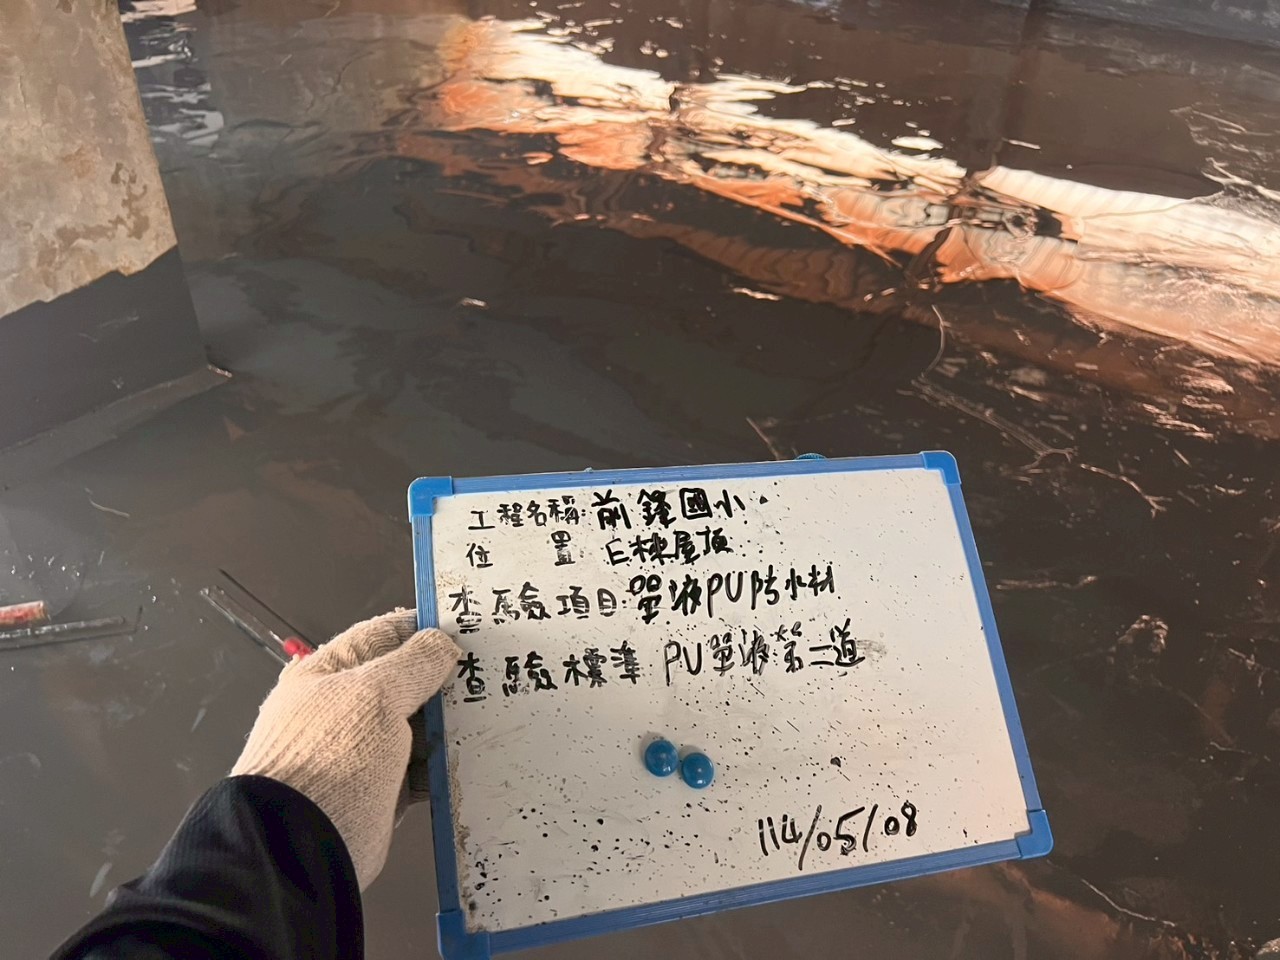 工程名稱:前鋒國小.
位置 E棟屋頂
查驗項目:單液PU防水材
查驗標準 PU單液第二道
114/05/08